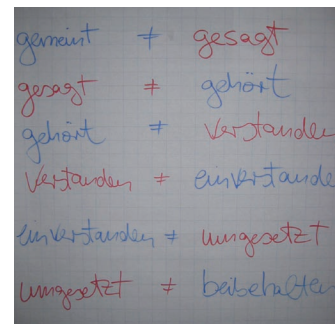 gemeint ≠ gesagt
gesagt ≠ gehört
gehört ≠ verstanden
verstanden ≠ einverstanden
einverstanden ≠ umgesetzt
umgesetzt ≠ beibehalten